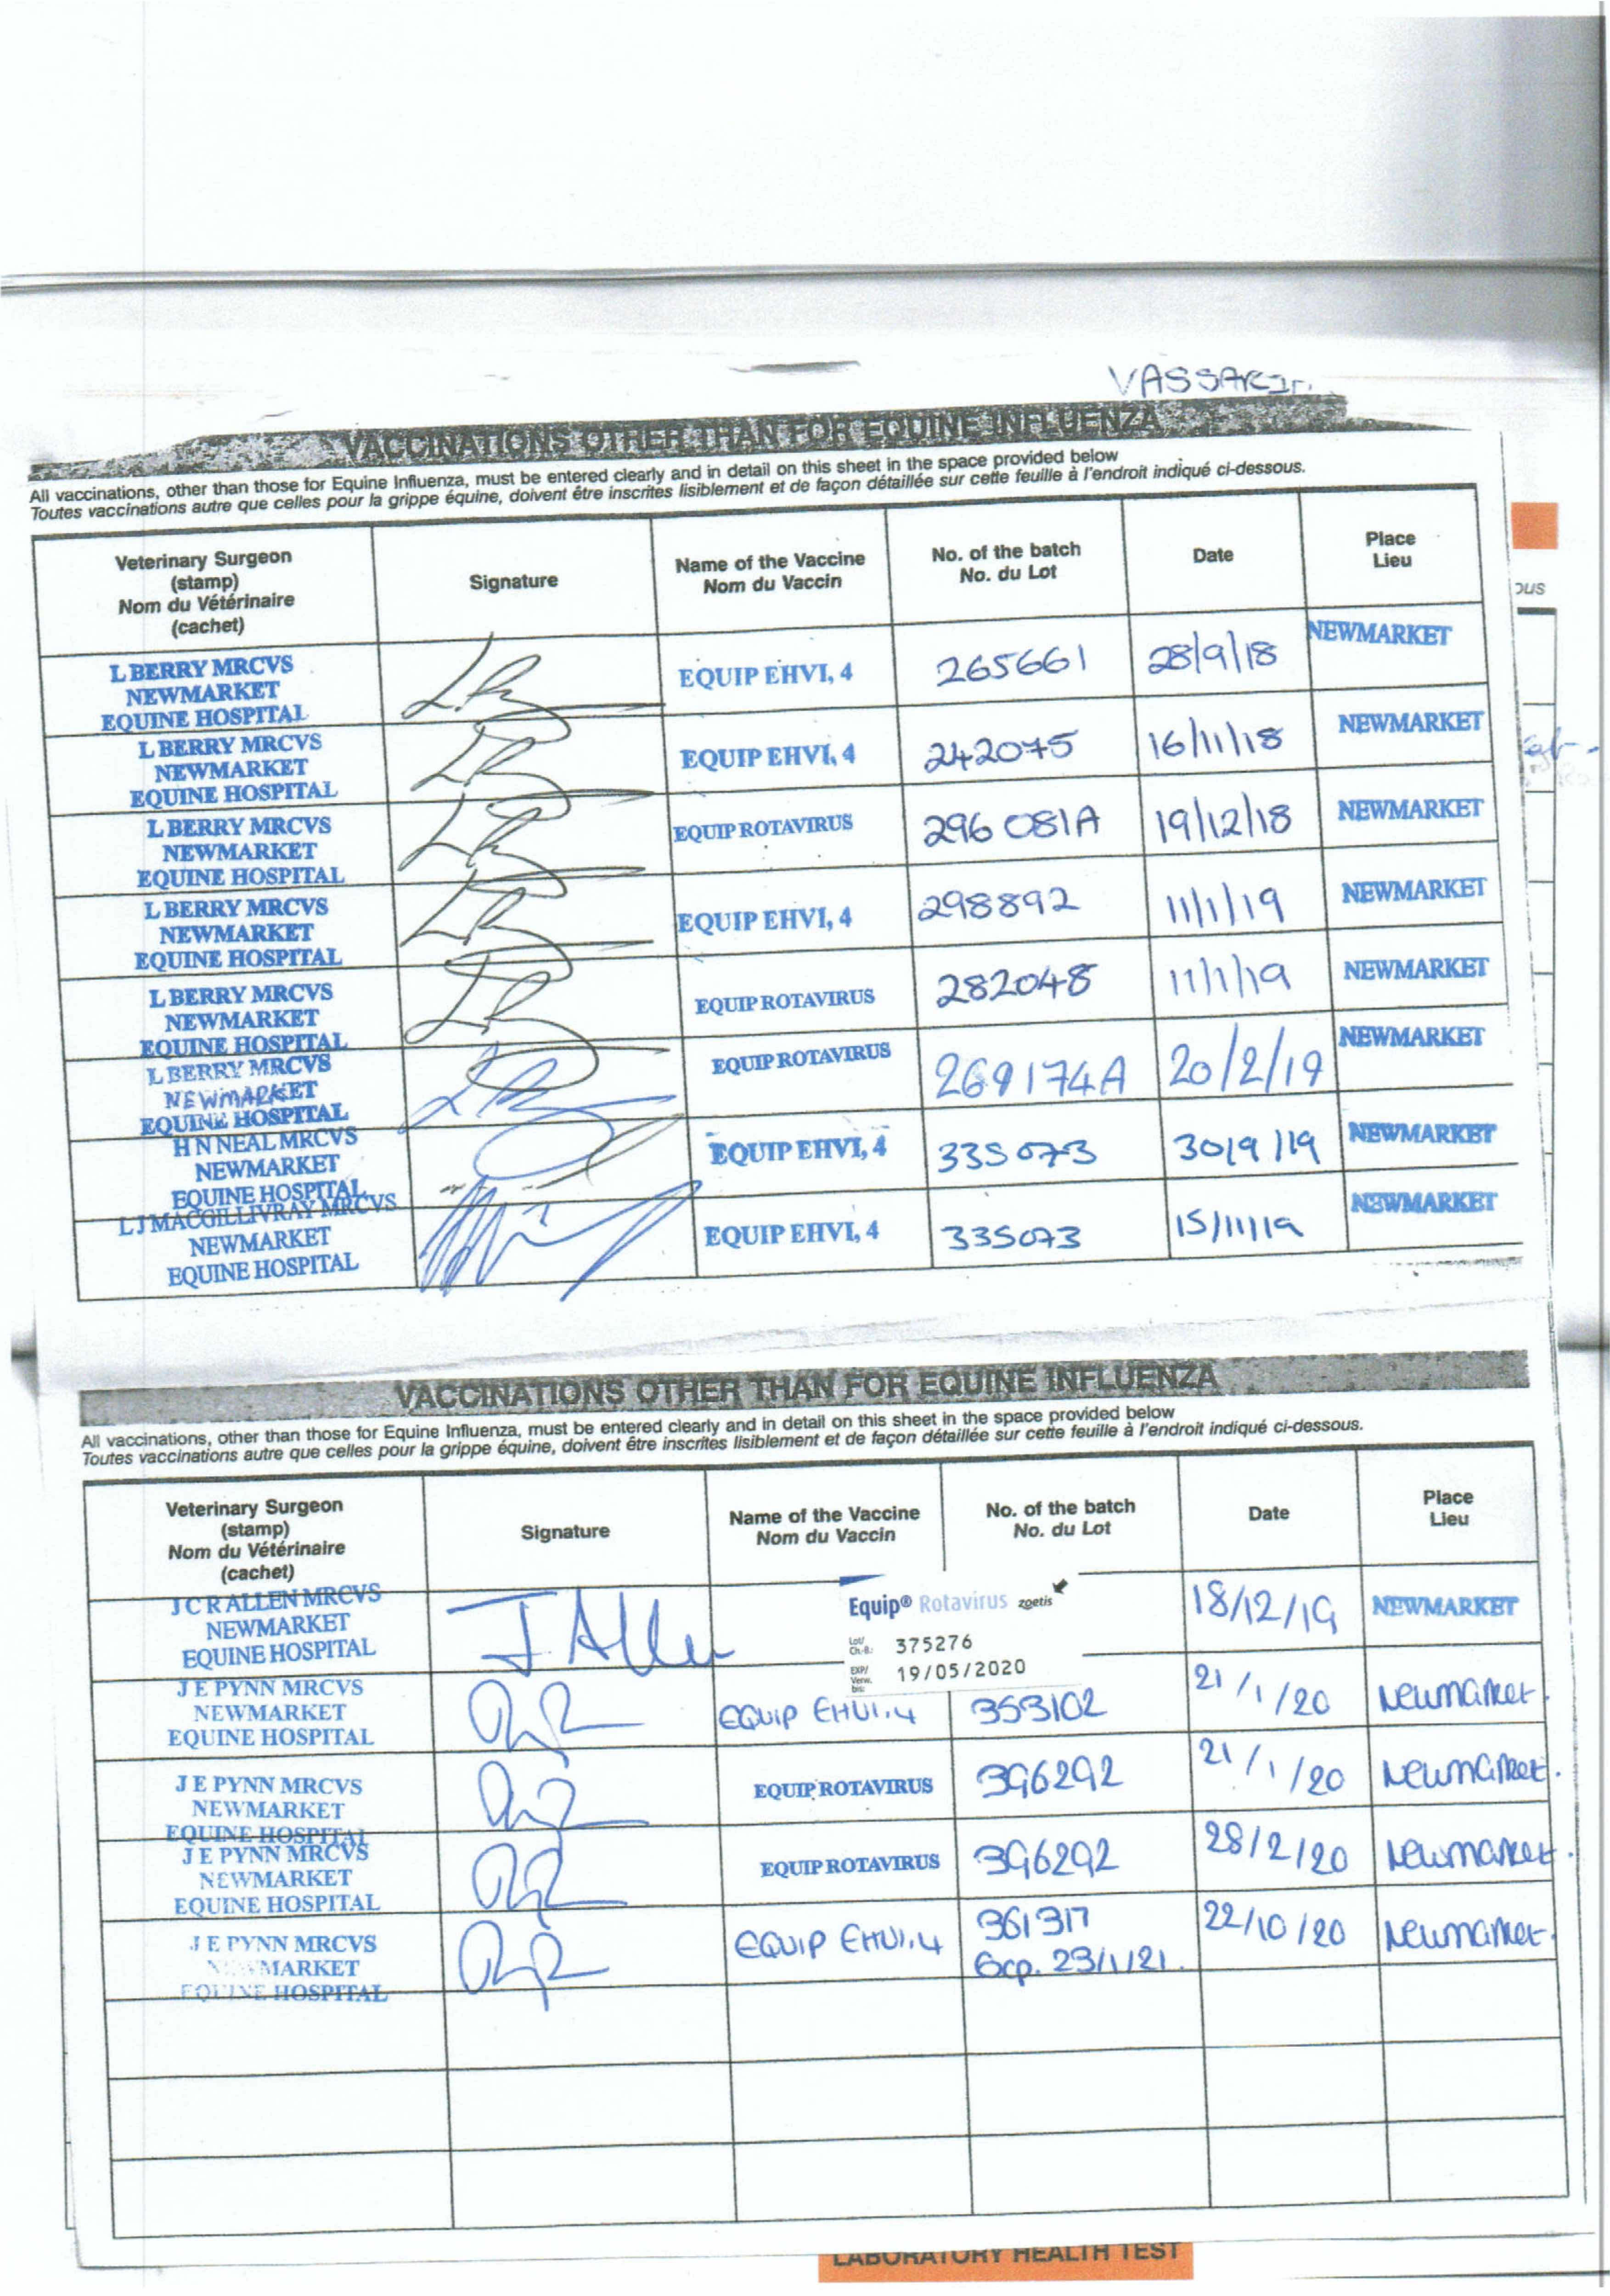 VACCINATIONS OTHER THAN FOR EQUINE INFLUENZA
All vaccinations, other than those for Equine Influenza, must be entered clearly and in detail on this sheet in the space provided below
Toutes vaccinations autre que celles pour la grippe équine, doivent être inscrites lisiblement et de façon détaillée sur cette feuille à l'endroit indiqué ci-dessous.
Veterinary Surgeon
(stamp)
Nom du Vétérinaire
(cachet)
Signature
Name of the Vaccine
Nom du Vaccin
No. of the batch
No. du Lot
Date
Place
Lieu
L BERRY MRCVS
NEWMARKET
EQUINE HOSPITAL
EQUIP EHVI, 4
265661
28/9/18
NEWMARKET
L BERRY MRCVS
NEWMARKET
EQUINE HOSPITAL
EQUIP EHVI, 4
242075
16/11/18
NEWMARKET
L BERRY MRCVS
NEWMARKET
EQUINE HOSPITAL
EQUIP ROTAVIRUS
296081A
19/12/18
NEWMARKET
L BERRY MRCVS
NEWMARKET
EQUINE HOSPITAL
EQUIP EHVI, 4
298892
11/1/19
NEWMARKET
L BERRY MRCVS
NEWMARKET
EQUINE HOSPITAL
EQUIP ROTAVIRUS
282048
11/1/19
NEWMARKET
L BERRY MRCVS
NEWMARKET
EQUINE HOSPITAL
EQUIP ROTAVIRUS
269174A
20/2/19
NEWMARKET
H N NEAL MRCVS
NEWMARKET
EQUINE HOSPITAL
EQUIP EHVI, 4
335073
30/9/19
NEWMARKET
L J MACGILLIVRAY MRCVS
NEWMARKET
EQUINE HOSPITAL
EQUIP EHVI, 4
335073
15/11/19
NEWMARKET
VACCINATIONS OTHER THAN FOR EQUINE INFLUENZA
All vaccinations, other than those for Equine Influenza, must be entered clearly and in detail on this sheet in the space provided below
Toutes vaccinations autre que celles pour la grippe équine, doivent être inscrites lisiblement et de façon détaillée sur cette feuille à l'endroit indiqué ci-dessous.
Veterinary Surgeon
(stamp)
Nom du Vétérinaire
(cachet)
Signature
Name of the Vaccine
Nom du Vaccin
No. of the batch
No. du Lot
Date
Place
Lieu
J C R ALLEN MRCVS
NEWMARKET
EQUINE HOSPITAL
J Allen
Equip® Rotavirus zoetis
Lot/
Ch.-B.: 375276
EXP/
Verw.
bis: 19/05/2020
18/12/19
NEWMARKET
J E PYNN MRCVS
NEWMARKET
EQUINE HOSPITAL
EQUIP EHV1,4
353102
21/1/20
Newmarket.
J E PYNN MRCVS
NEWMARKET
EQUINE HOSPITAL
EQUIP ROTAVIRUS
396292
21/1/20
Newmarket.
J E PYNN MRCVS
NEWMARKET
EQUINE HOSPITAL
EQUIP ROTAVIRUS
396292
28/2/20
Newmarket.
J E PYNN MRCVS
NEWMARKET
EQUINE HOSPITAL
EQUIP EHV1,4
361317
Exp. 23/1/21.
22/10/20
Newmarket.
LABORATORY HEALTH TEST